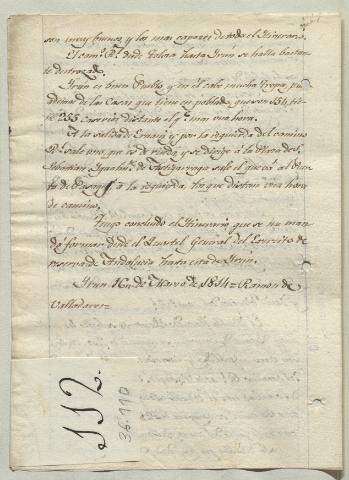 son muy buenos, y los mas capaces de todo el Itinerario.
El cam.º R.l desde Tolosa hasta Yrún se halla bastan-
te destrozado.
Yrún es buen Pueblo, y en el cabe mucha tropa, pu-
de las Casas que tiene en poblado, que son 154, hay
255 Caserios distante el q.e mas una hora.
A la salida de Ernani, y por la izquierda del camino
R.l sale uno, que es de ruedas, y se dirije a la Plaza de S.n
Sebastian. Igualm.te de sale el que vá al Puer-
to de Pasages á la izquierda, los que distan una hora
de camino.
Tengo concluido el Itinerario que se me man-
formar desde el Quartel General del Exercito de
reserva de Andalucia hasta esta de Yrún.
Yrun 16 de Marzo de 1814 = Ramon de
Valladares =
112.
36.110